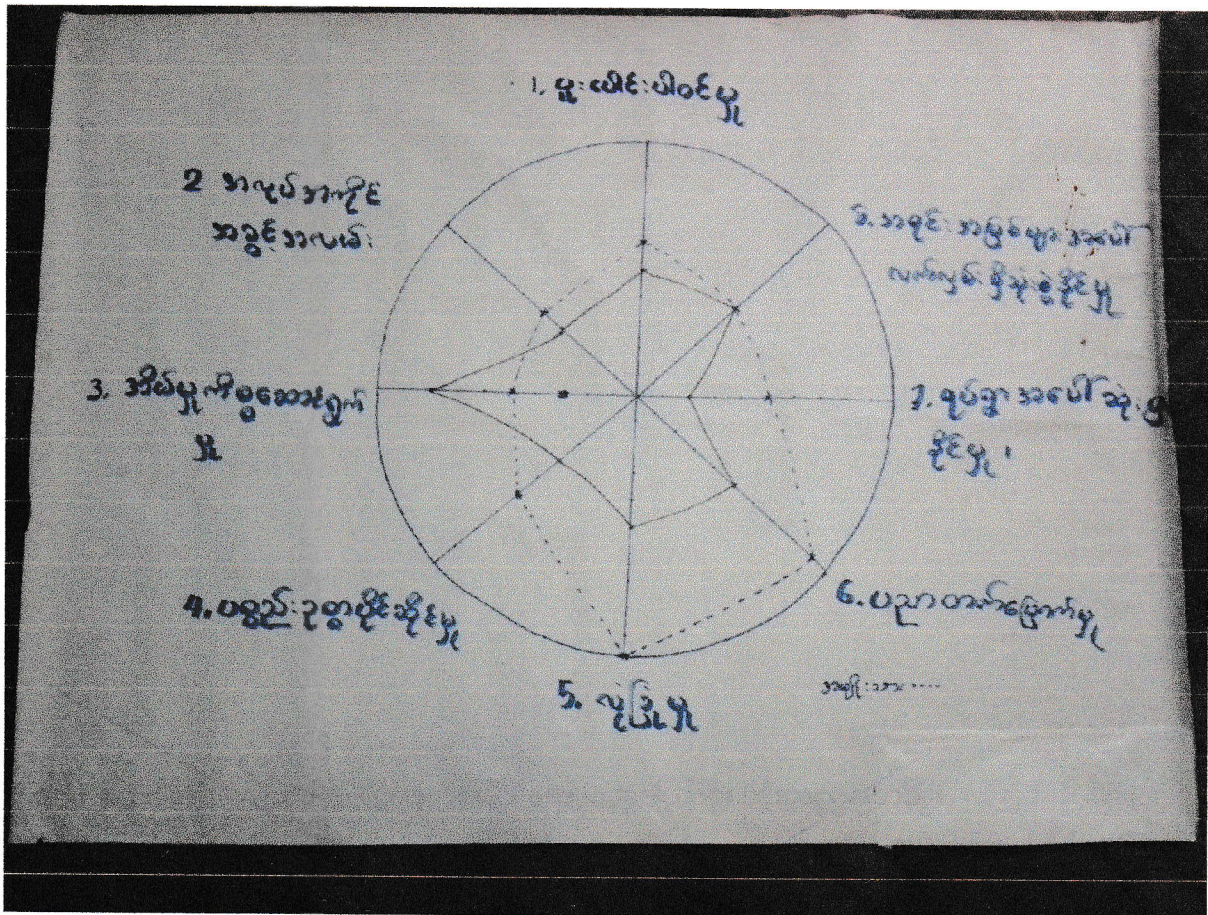 1. ပူးပေါင်းပါဝင်မှု
2 အလုပ်အကိုင်
အခွင့်အလမ်း
3. အိမ်မှုကိစ္စဆောင်ရွက်
မှု
4. ပစ္စည်းဥစ္စာပိုင်ဆိုင်မှု
5. လုံခြုံမှု
6. ပညာတတ်မြောက်မှု
အမျိုးသား ----
7. ရပ်ရွာအပေါ်ဆုံးဖြ
နိုင်မှု ၊
8. အရင်းအမြစ်များအပေါ်
လက်လှမ်းမှီသုံးစွဲနိုင်မှု